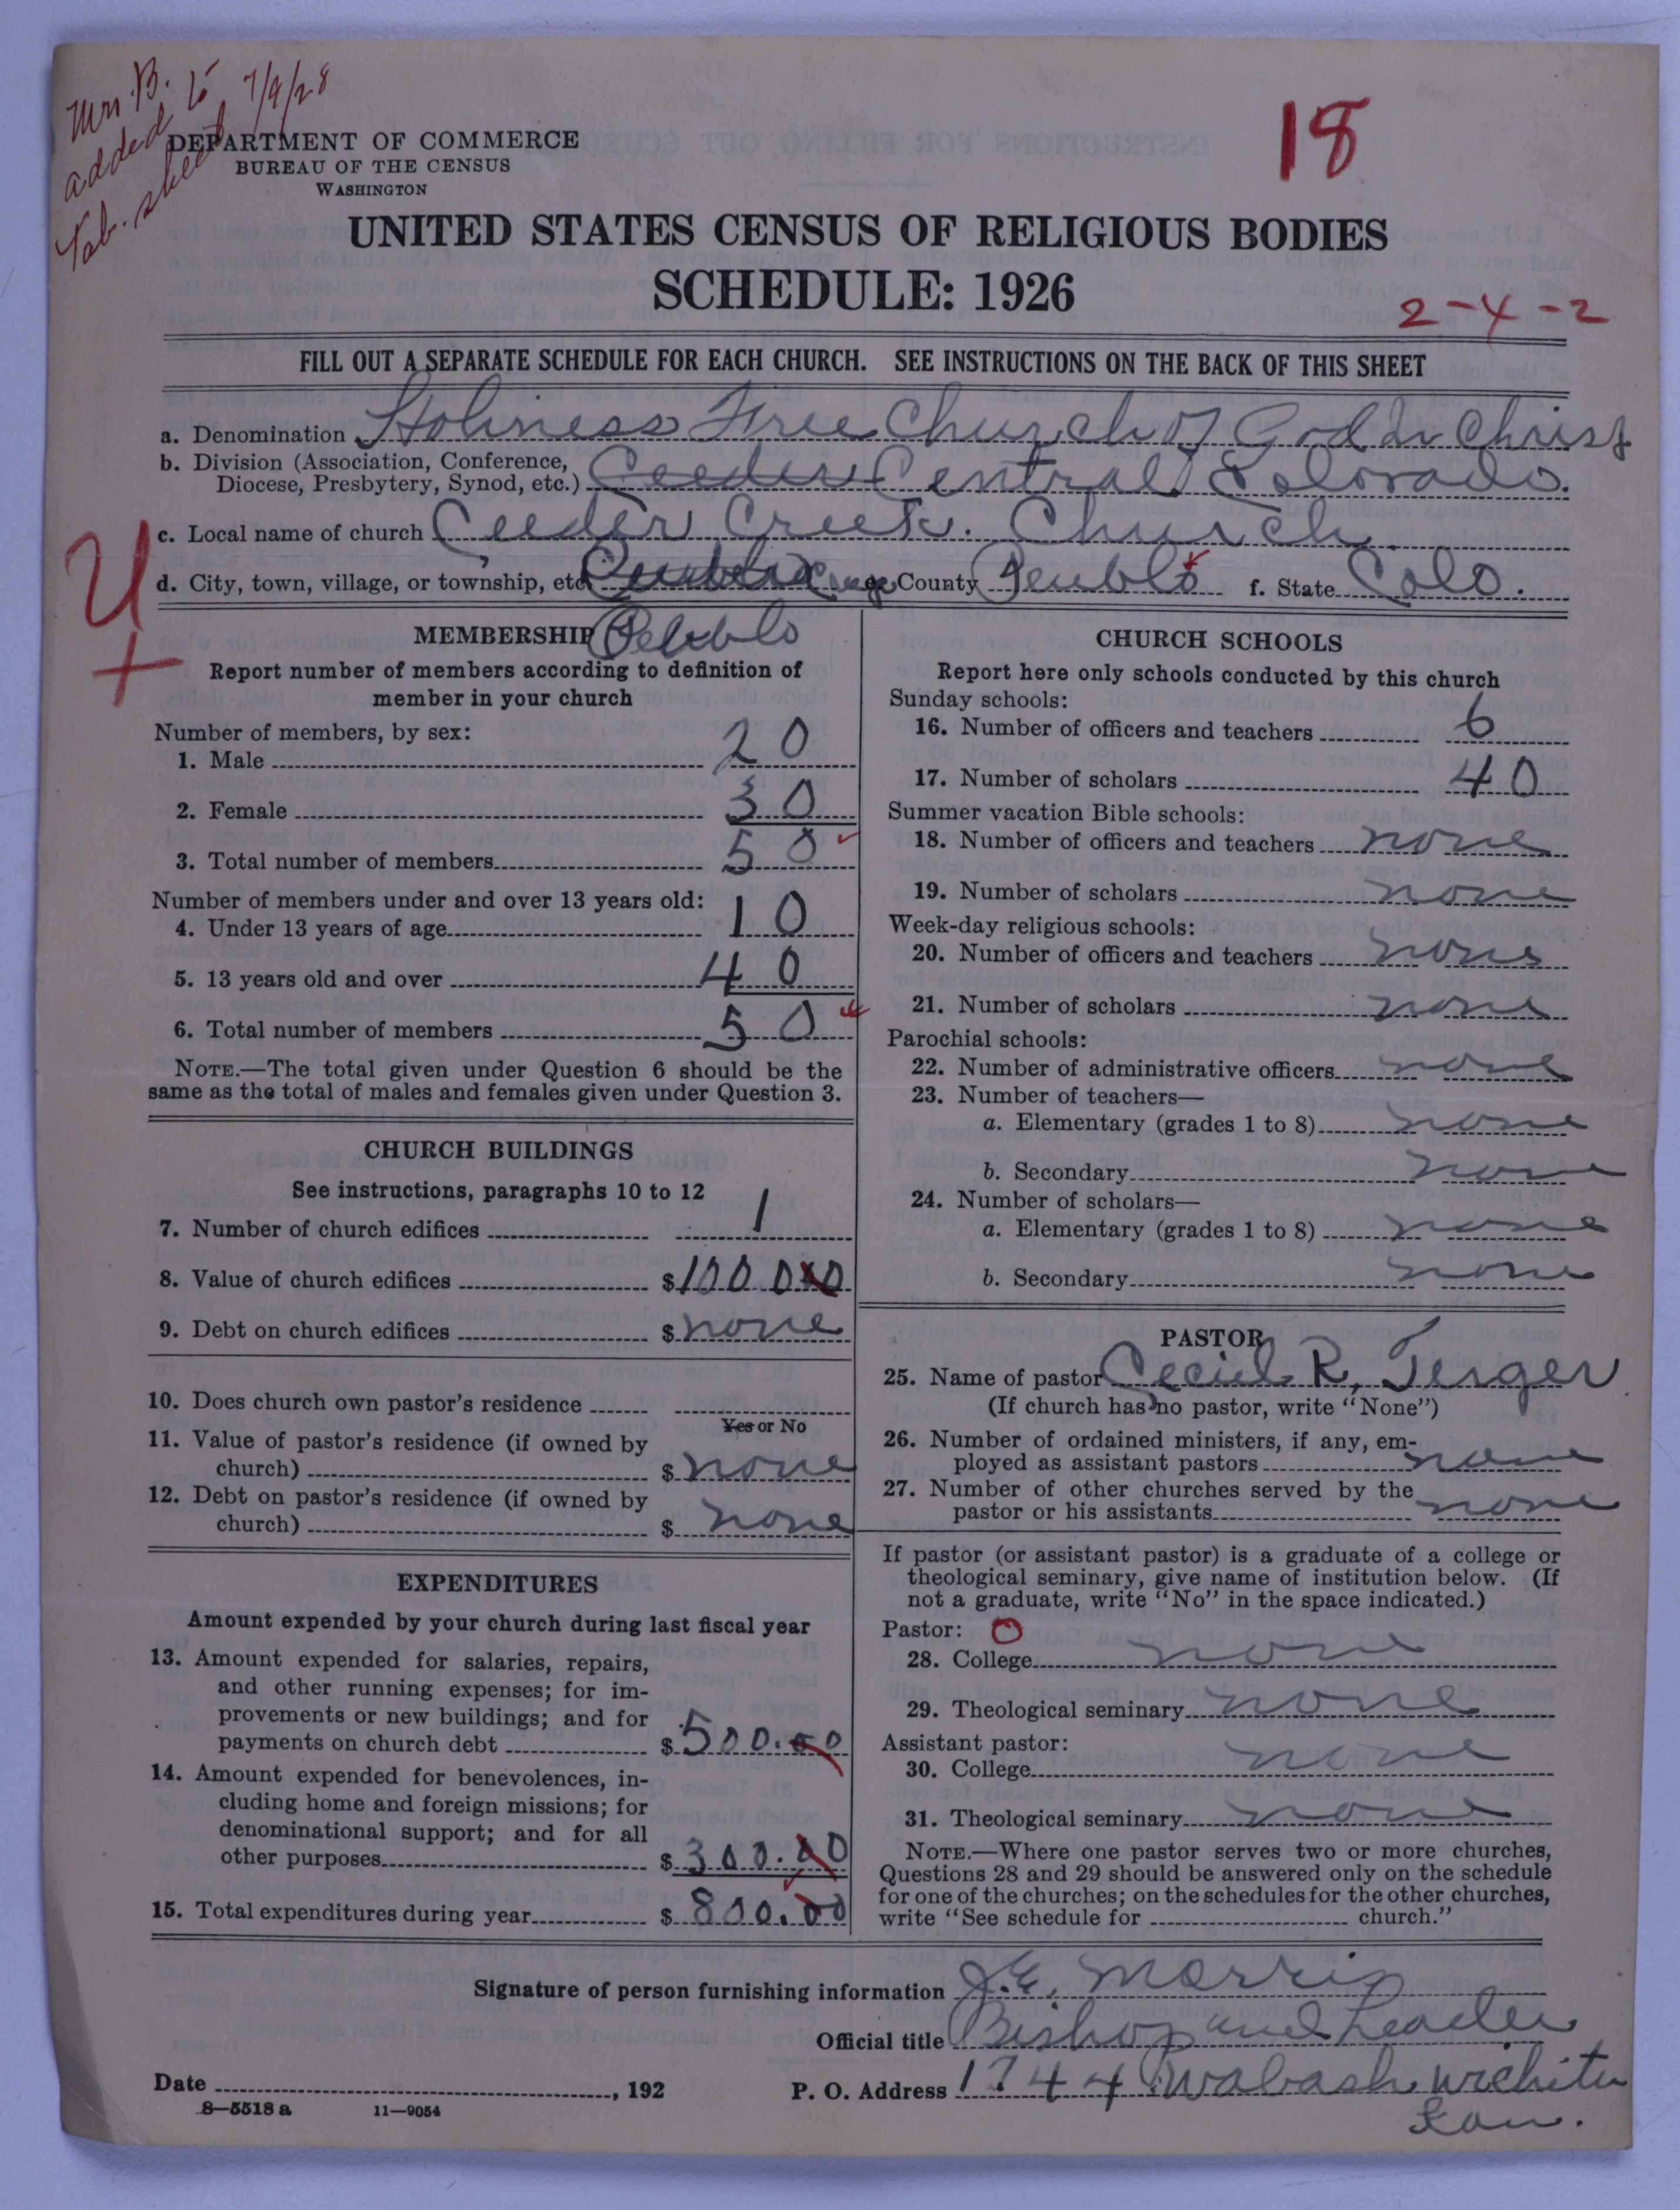 Mrs. B.
added to 7/9/28
Tab. sheet
18
DEPARTMENT OF COMMERCE
BUREAU OF THE CENSUS
WASHINGTON
UNITED STATES CENSUS OF RELIGIOUS BODIES
SCHEDULE: 1926
2-4-2
FILL OUT A SEPARATE SCHEDULE FOR EACH CHURCH. SEE INSTRUCTIONS ON THE BACK OF THIS SHEET
a. Denomination Holiness Free Church of God In Christ
b. Division (Association, Conference,
Diocese, Presbytery, Synod, etc.) Ceeder Central Colorado.
c. Local name of church Ceeder Creek. Church.
d. City, town, village, or township, etc. e. County Peublo f. State Colo.
Peublo
U
+
MEMBERSHIP
Report number of members according to definition of
member in your church
Number of members, by sex:
1. Male 20
2. Female 30
3. Total number of members 50
Number of members under and over 13 years old:
4. Under 13 years of age 10
5. 13 years old and over 40
6. Total number of members 50
NOTE.—The total given under Question 6 should be the
same as the total of males and females given under Question 3.
CHURCH BUILDINGS
See instructions, paragraphs 10 to 12
7. Number of church edifices 1
8. Value of church edifices $100000
9. Debt on church edifices $none
10. Does church own pastor's residence
Yes or No
11. Value of pastor's residence (if owned by
church) $none
12. Debt on pastor's residence (if owned by
church) $ none
EXPENDITURES
Amount expended by your church during last fiscal year
13. Amount expended for salaries, repairs,
and other running expenses; for im-
provements or new buildings; and for
payments on church debt $500.00
14. Amount expended for benevolences, in-
cluding home and foreign missions; for
denominational support; and for all
other purposes $300.00
15. Total expenditures during year $800.00
CHURCH SCHOOLS
Report here only schools conducted by this church
Sunday schools:
16. Number of officers and teachers 6
17. Number of scholars 40
Summer vacation Bible schools:
18. Number of officers and teachers none
19. Number of scholars none
Week-day religious schools:
20. Number of officers and teachers none
21. Number of scholars none
Parochial schools:
22. Number of administrative officers none
23. Number of teachers—
a. Elementary (grades 1 to 8) none
b. Secondary none
24. Number of scholars—
a. Elementary (grades 1 to 8) none
b. Secondary none
PASTOR
25. Name of pastor Ceciel R, Terger
(If church has no pastor, write "None")
26. Number of ordained ministers, if any, em-
ployed as assistant pastors none
27. Number of other churches served by the
pastor or his assistants none
If pastor (or assistant pastor) is a graduate of a college or
theological seminary, give name of institution below. (If
not a graduate, write "No" in the space indicated.)
Pastor: O
28. College none
29. Theological seminary none
Assistant pastor:
30. College none
31. Theological seminary none
NOTE.—Where one pastor serves two or more churches,
Questions 28 and 29 should be answered only on the schedule
for one of the churches; on the schedules for the other churches,
write "See schedule for church."
Signature of person furnishing information J.E. Morris
Official title Bishop and Leader
Date , 192 P. O. Address 1744 Wabash Wichita
Kan.
8—5518 a 11—9054